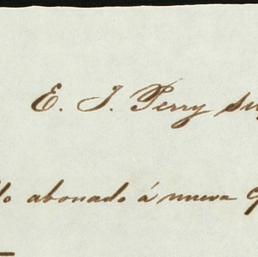 E. J. Perry su
abonado á nueva